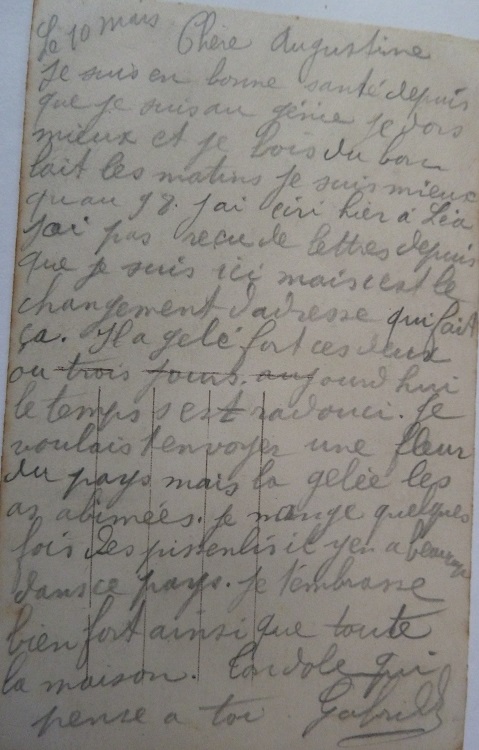 Le 10 mars Chère Augustine
Je suis en bonne santé depuis
que je suis au génie je dors
mieux et je bois du bon
lait les matins je suis mieux
qu au 98. J ai écri hier à Léa
J ai pas recu de lettres depuis
que je suis ici mais c est le
changement d adresse qui fait
ça. Il a gelé fort ces deux
ou trois jours. aujourd hui
le temps s est radouci. Je
voulais t envoyer une fleur
du pays mais la gelée les
as abimées. je mange quelques
fois des pissenlis il y en a beaucoup
dans ce pays. Je t embrasse
bien fort ainsi que toute
la maison. qui
pense a toi Gabriel